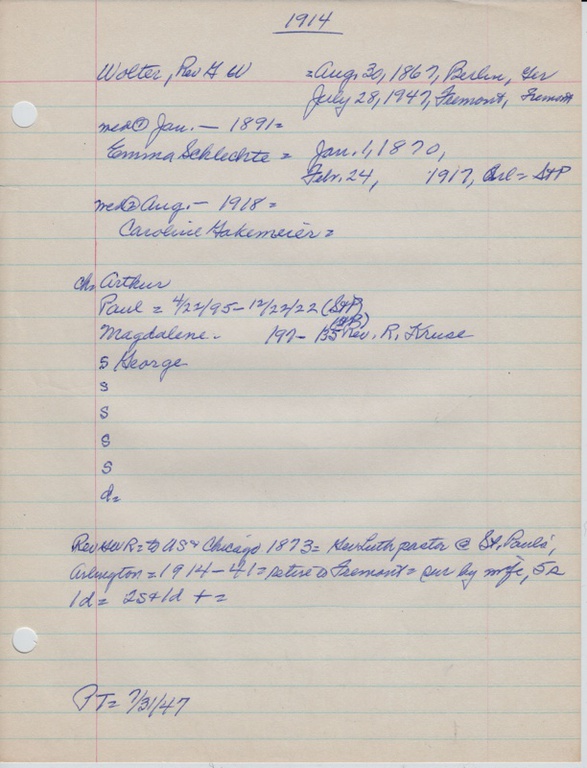 1914
Wolter, Rev G W = Aug. 30, 1867, Berlin, Ger
July 28, 1947, Fremont, Fremont
med① Jan. — 1891 =
Emma Schlechte = Jan. 1, 1870,
Febr. 24, 1917, Arl = StP
med② Aug. — 1918 =
Caroline Hakemeier =
ch. Arthur
Paul = 4/22/95 - 12/22/22 (StP)
Magdalene. 197- 135 Rev. R. Kruse
s George
s
s
s
s
d =
Rev = to US & Chicago 1873 = Luth pastor @ St. Pauls,
Arlington = 1914 - 41 = retire to Fremont = sur by wife, 5s
1d = 2s & 1d + =
PT = 7/31/47